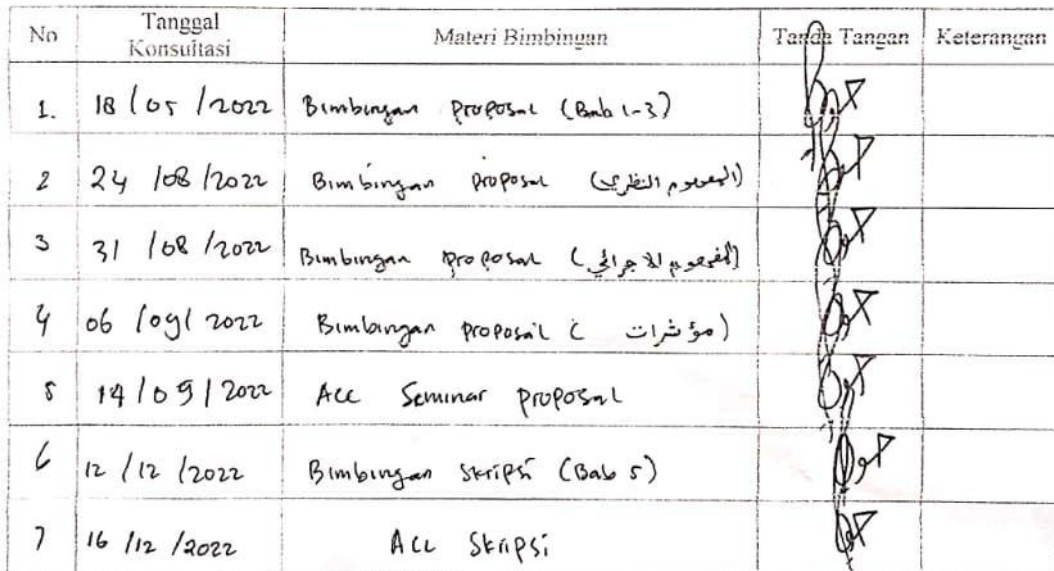 No Tanggal Konsultasi Materi Bimbingan Tanda Tangan Keterangan
1. 18/05/2022 Bimbingan proposal (Bab 1-3)
2 24/08/2022 Bimbingan proposal (المفهوم النظري)
3 31/08/2022 Bimbingan proposal (المفهوم الاجرائي)
4 06/09/2022 Bimbingan proposal (مؤشرات)
5 14/09/2022 Acc Seminar proposal
6 12/12/2022 Bimbingan Skripsi (Bab 5)
7 16/12/2022 Acc Skripsi